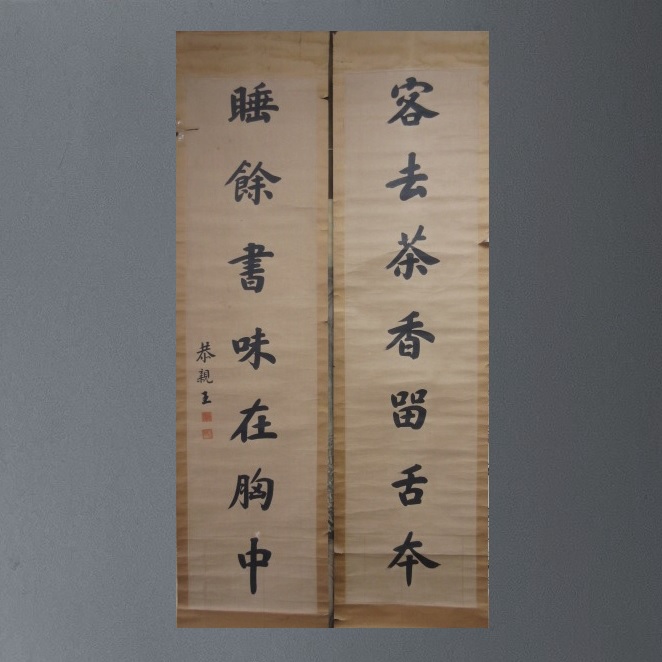 客去茶香留舌本
睡餘書味在胸中
恭親王